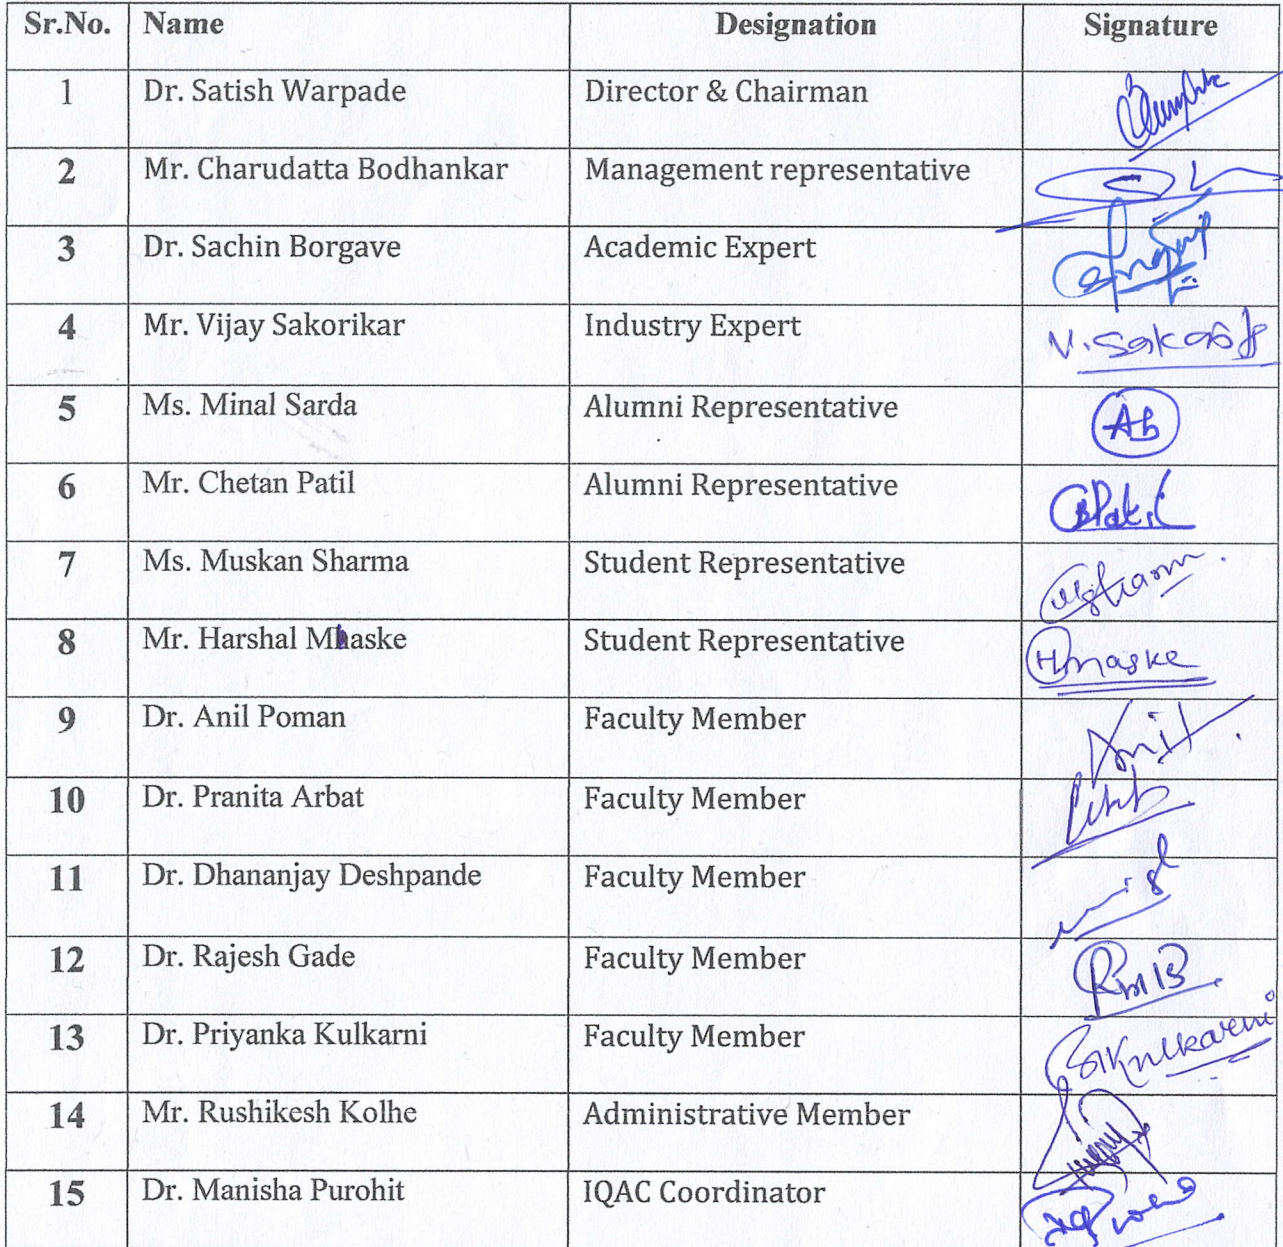 Sr.No. Name Designation Signature
1 Dr. Satish Warpade Director & Chairman
2 Mr. Charudatta Bodhankar Management representative
3 Dr. Sachin Borgave Academic Expert
4 Mr. Vijay Sakorikar Industry Expert
5 Ms. Minal Sarda Alumni Representative
6 Mr. Chetan Patil Alumni Representative
7 Ms. Muskan Sharma Student Representative
8 Mr. Harshal Mhaske Student Representative
9 Dr. Anil Poman Faculty Member Anil
10 Dr. Pranita Arbat Faculty Member
11 Dr. Dhananjay Deshpande Faculty Member
12 Dr. Rajesh Gade Faculty Member
13 Dr. Priyanka Kulkarni Faculty Member
14 Mr. Rushikesh Kolhe Administrative Member
15 Dr. Manisha Purohit IQAC Coordinator